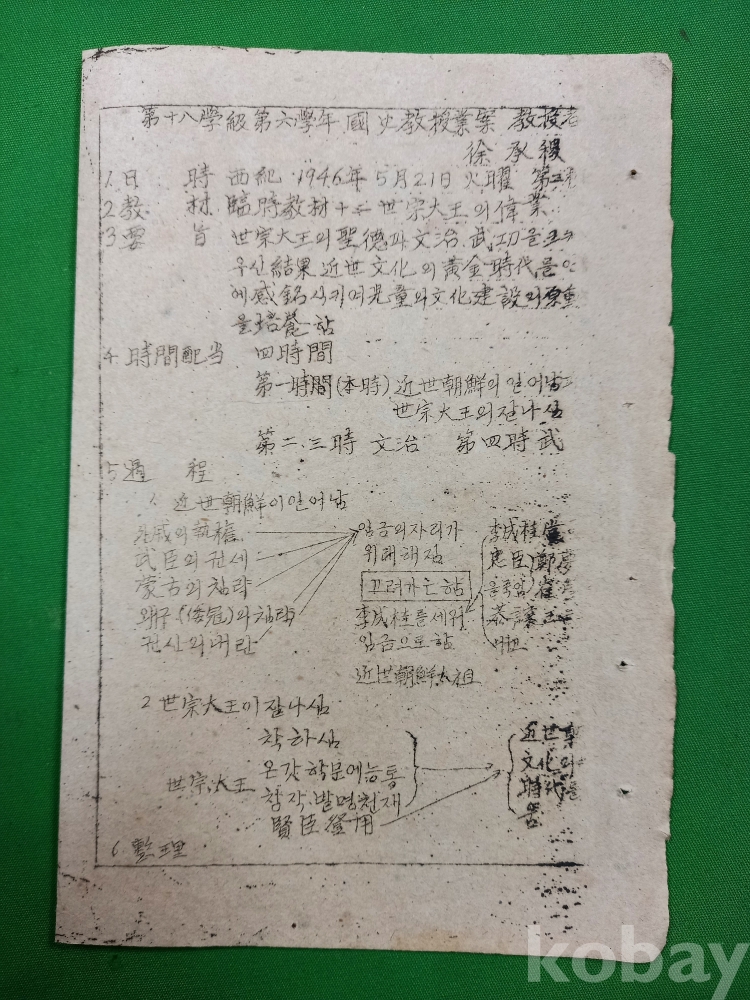 第十八學級第六學年 國史敎授業案 敎授者
徐承稷
1. 日 時 西紀 1946年 5月21日 火曜 第
2 敎 材 臨時敎材 十二 世宗大王의 偉業
3 要 旨 世宗大王의 聖德과 文治. 武功을
우신 結果 近世 文化의 黃金時代를
에 感銘시키여 兒童의 文化建設의
을 培養
4 時間配当 四時間
第一時間(本時) 近世朝鮮의 일어남
世宗大王의 잘나심
第二.三時 文治 第四時 武
5 過 程
1. 近世朝鮮이 일어남
의 執權 임금의 자리가 李成桂
武臣의 권세 위태해짐 忠臣 鄭夢
蒙古의 침략 고려가 은 함 崔
왜구(倭寇)의 침략 李成桂를 세워 恭讓王
의 내란 임금으로 함
近世朝鮮太祖
2 世宗大王이 잘나심
착하심 近世朝
世宗大王 온갓 학문에 능통 文化의
창작.발명천재 時代를
賢臣登用
6 整理
kobay